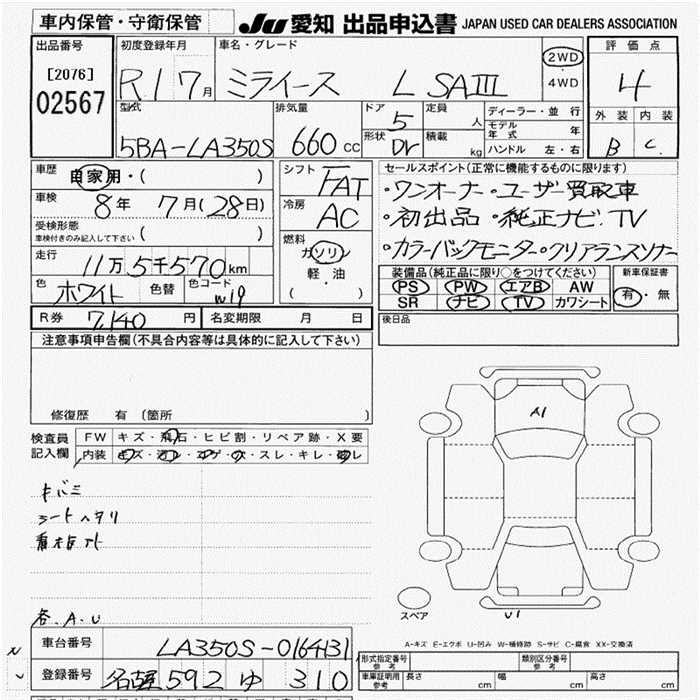 車内保管・守衛保管
JU 愛知 出品申込書 JAPAN USED CAR DEALERS ASSOCIATION
出品番号
[2076]
02567
初度登録年月
R1 7月
車名・グレード
ミライース L SAⅢ
2WD
4WD
評価点
4
外装 内装
B C
型式
5BA-LA350S
排気量
660 CC
ドア
5
形状
DV
定員
人
積載
kg
ディーラー・並行
モデル年式 年
ハンドル 左・右
車歴
自家用・( )
車検
8年 7月 (28日)
受検形態
車検付きのみ記入して下さい ( )
走行
11万5千570km
色
ホワイト
色替
色コード
W19
シフト
FAT
冷房
AC
燃料
ガソリン
軽・油
( )
セールスポイント(正常に機能するものに限ります)
・ワンオーナー・ユーザー買取車
・初出品・純正ナビ.TV
・カラーバックモニター・クリアランスソナー
装備品(純正品に限り○をつけてください)
PS PW エアB AW
SR ナビ TV カワシート
新車保証書
有・無
R券 7,140 円
名変期限 月 日
後日品
注意事項申告欄(不具合内容等は具体的に記入して下さい)
修復歴 有 (箇所 )
検査員記入欄
FW キズ・飛石・ヒビ割・リペア跡・X要
内装 キズ・汚レ・コゲ・穴・スレ・キレ・破レ
キバミ
シートヘタリ
各.A.U
A1
U1
スペア
A-キズ E-エクボ U-凹み W-補修跡 S-サビ C-腐食 XX-交換済
車台番号
LA350S-0164131
登録番号
名古屋 592 ゆ 310
形式指定番号 参考
類別区分番号 参考
車庫証明用 参考
長さ cm 幅 cm 高さ cm